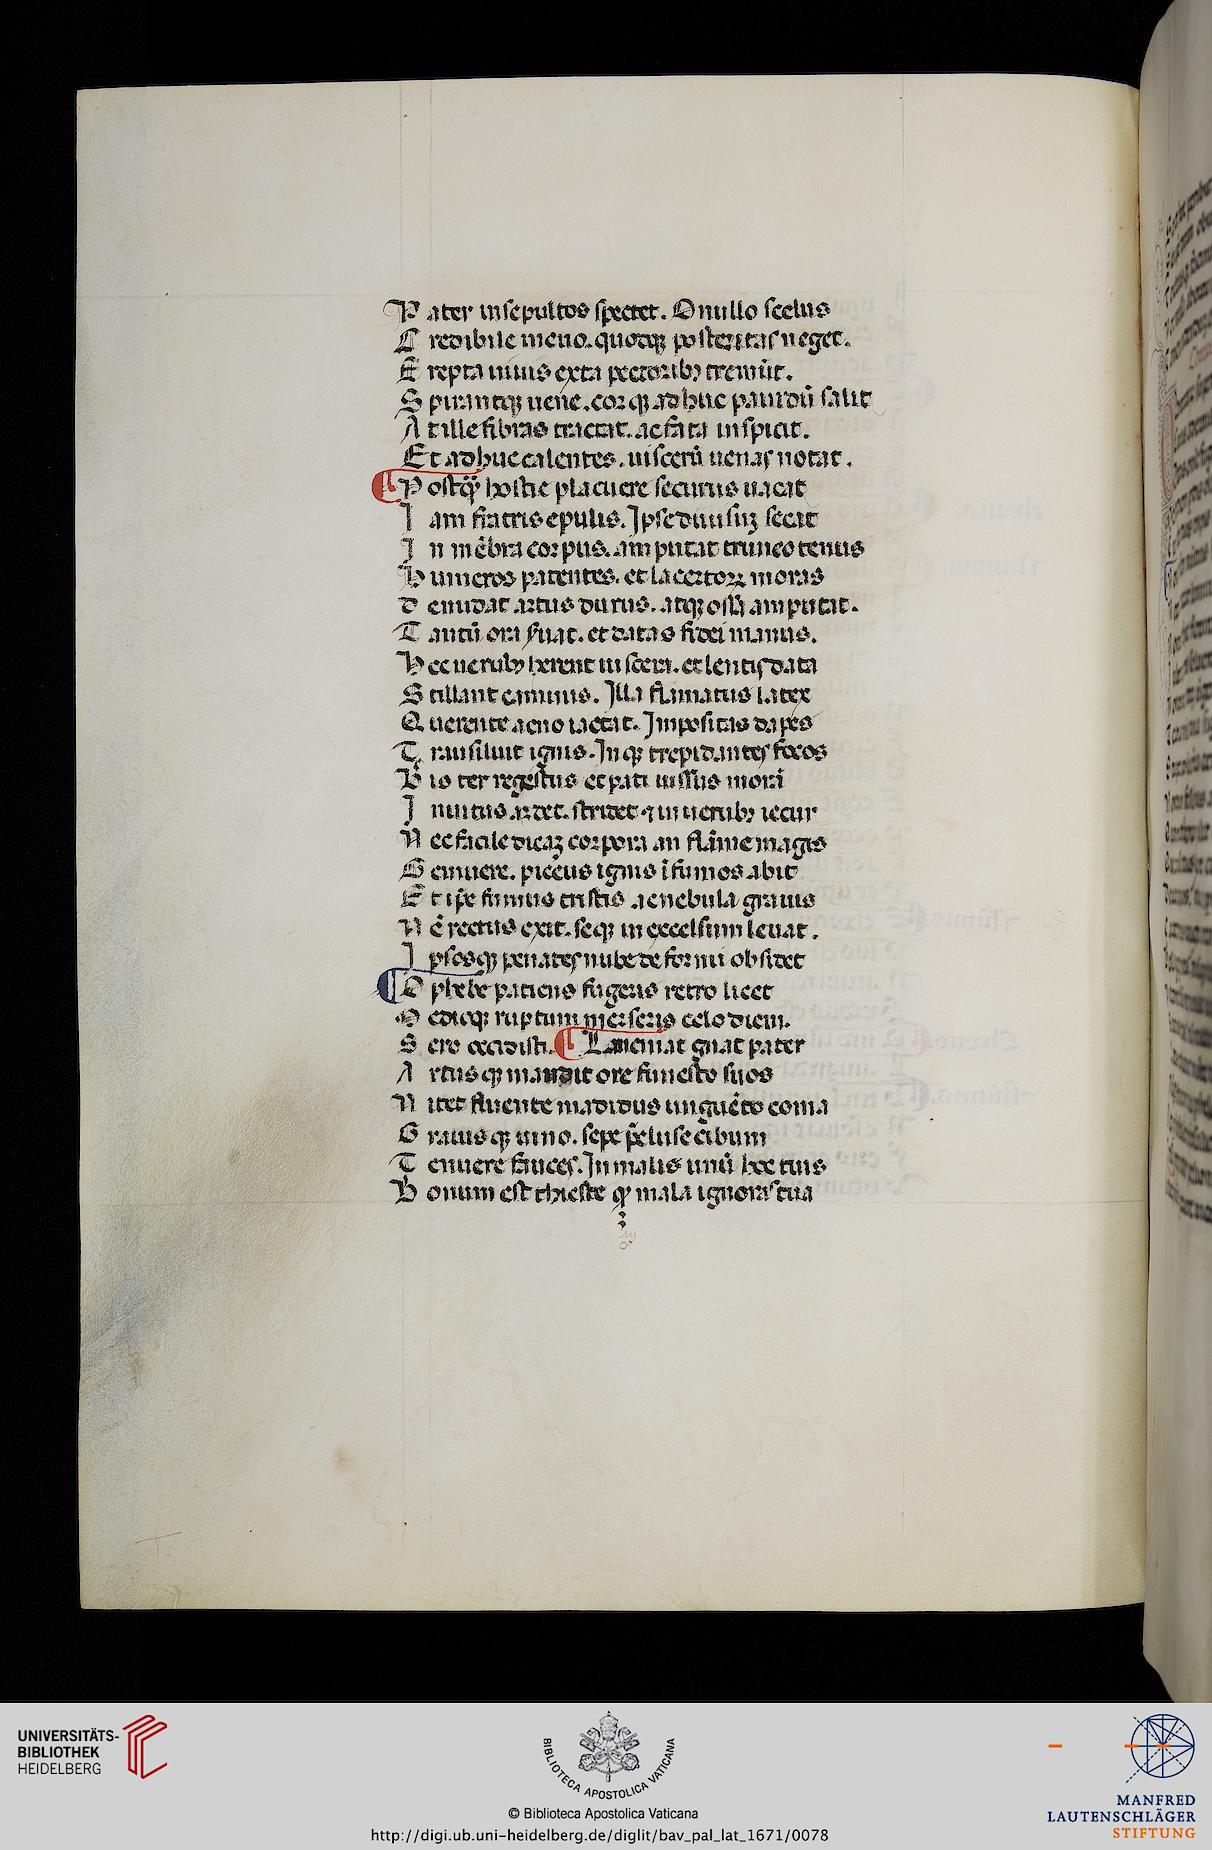 Pater insepultos spectet. O nullo scelus
Credibile in euo. quodqꝫ posteritas neget.
Erepta uiuis exta pectoribꝫ tremūt.
Spirantqꝫ uene. cor qꝫ adhuc pauidū salit
At ille fibras tractat. ac fata inspicit.
Et adhuc calentes. uiscerū uenas notat.
Postqͣꝫ hostie placuere securus uacat
Iam fratris epulis. Ipse diuisuꝫ secat
In mēbra corpus. amputat trunco tenus
Humeros patentes. et lacertoꝝ moras
Denudat artus durus. atqꝫ ossa amputat.
Tantū ora seruat. et datas fidei manus.
Hec uerubꝫ herent uiscera. et lentis data
Stillant caminis. Illa flāmatus latex
Querente aeno iactat. Impositas dapes
Transiluit ignis. In qꝫ trepidantes focos
Bis ter regestus et pati iussus morā
Inuitus ardet. stridet ⁊ in uerubꝫ iecur
Nec facile dicaꝫ corpora an flāme magis
Gemuere. piceus ignis ī fumos abit
Et ip̄e fumus tristis ac nebula grauis
Nō rectus exit. seqꝫ in excelsum leuat.
Ipsosqꝫ penates nube deformi obsidet
O phebe patiens fugeris retro licet
Medioqꝫ ruptum merseris celo diem.
Sero occidisti. Lancinat gnatos pater
Artusqꝫ mandit ore funesto suos
Nitet fluente madidus unguēto coma
Grauisqꝫ uino. sepe p̄cluse cibum
Tenuere fauces. In malis unū hoc tuis
Bonum est thieste qꝫ mala ignoras tua
UNIVERSITÄTS-
BIBLIOTHEK
HEIDELBERG
BIBLIOTECA APOSTOLICA VATICANA
© Biblioteca Apostolica Vaticana
http://digi.ub.uni-heidelberg.de/diglit/bav_pal_lat_1671/0078
MANFRED
LAUTENSCHLÄGER
STIFTUNG